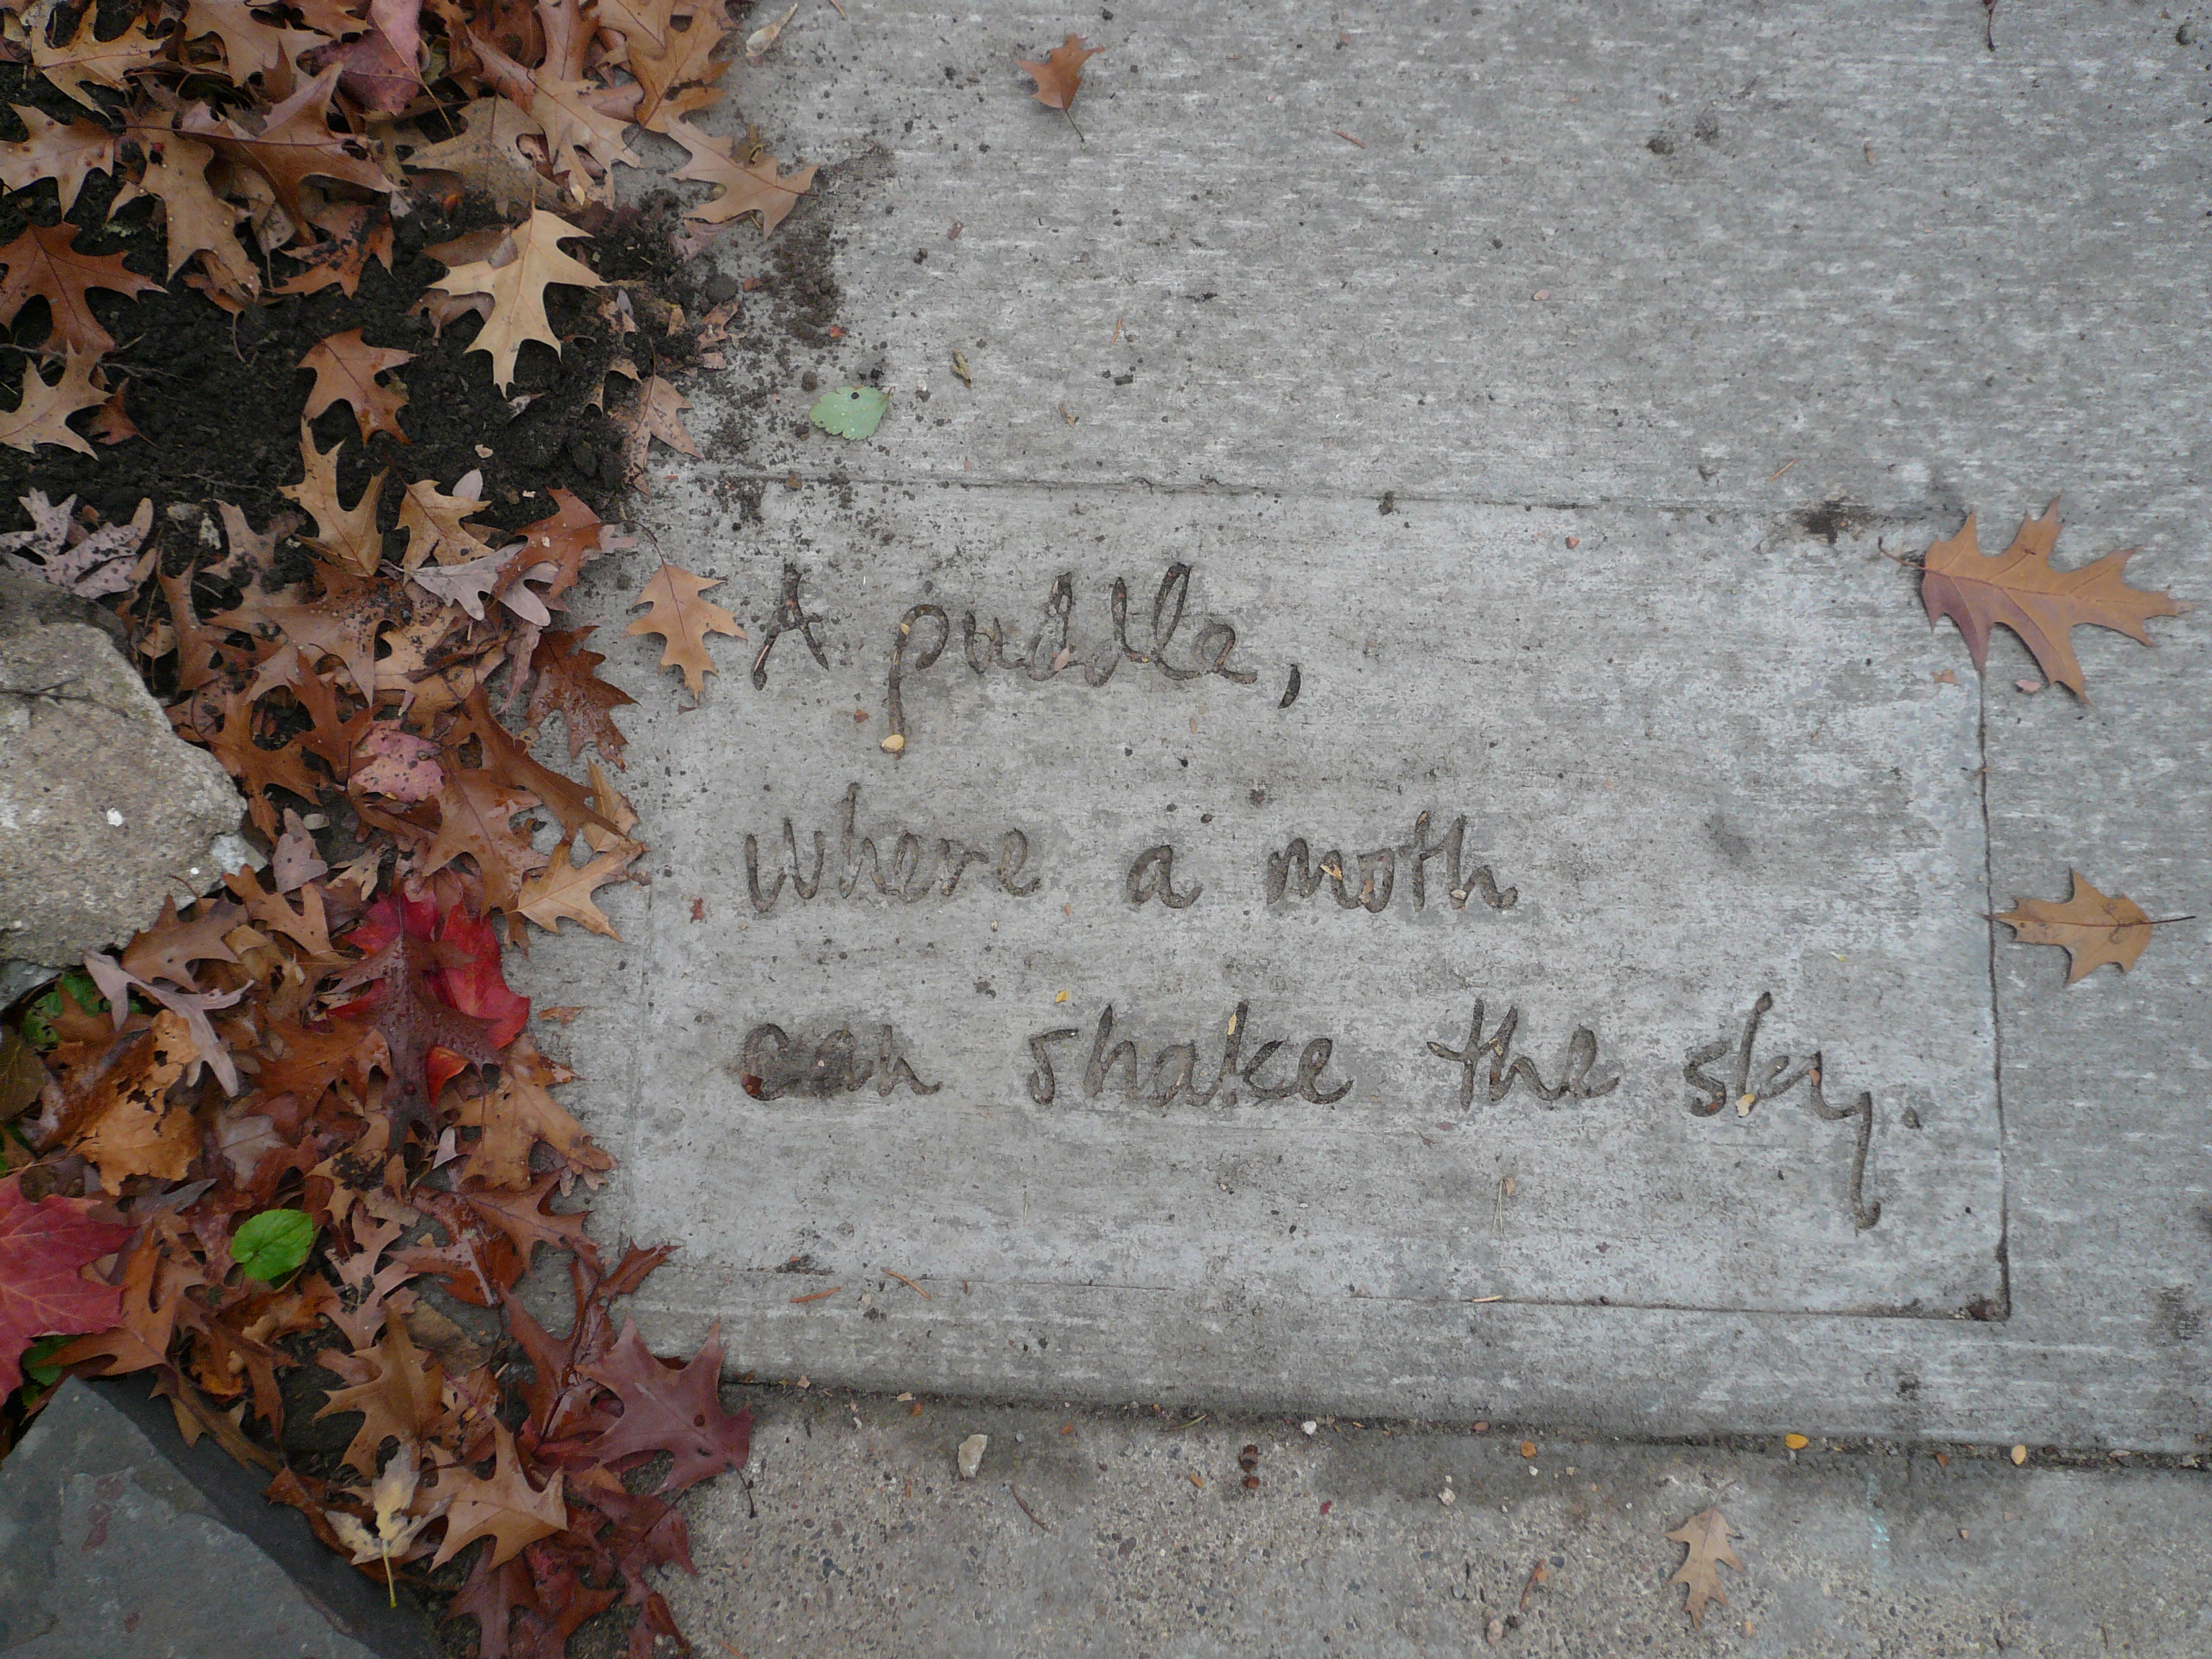 A puddle,
where a moth
can shake the sky.